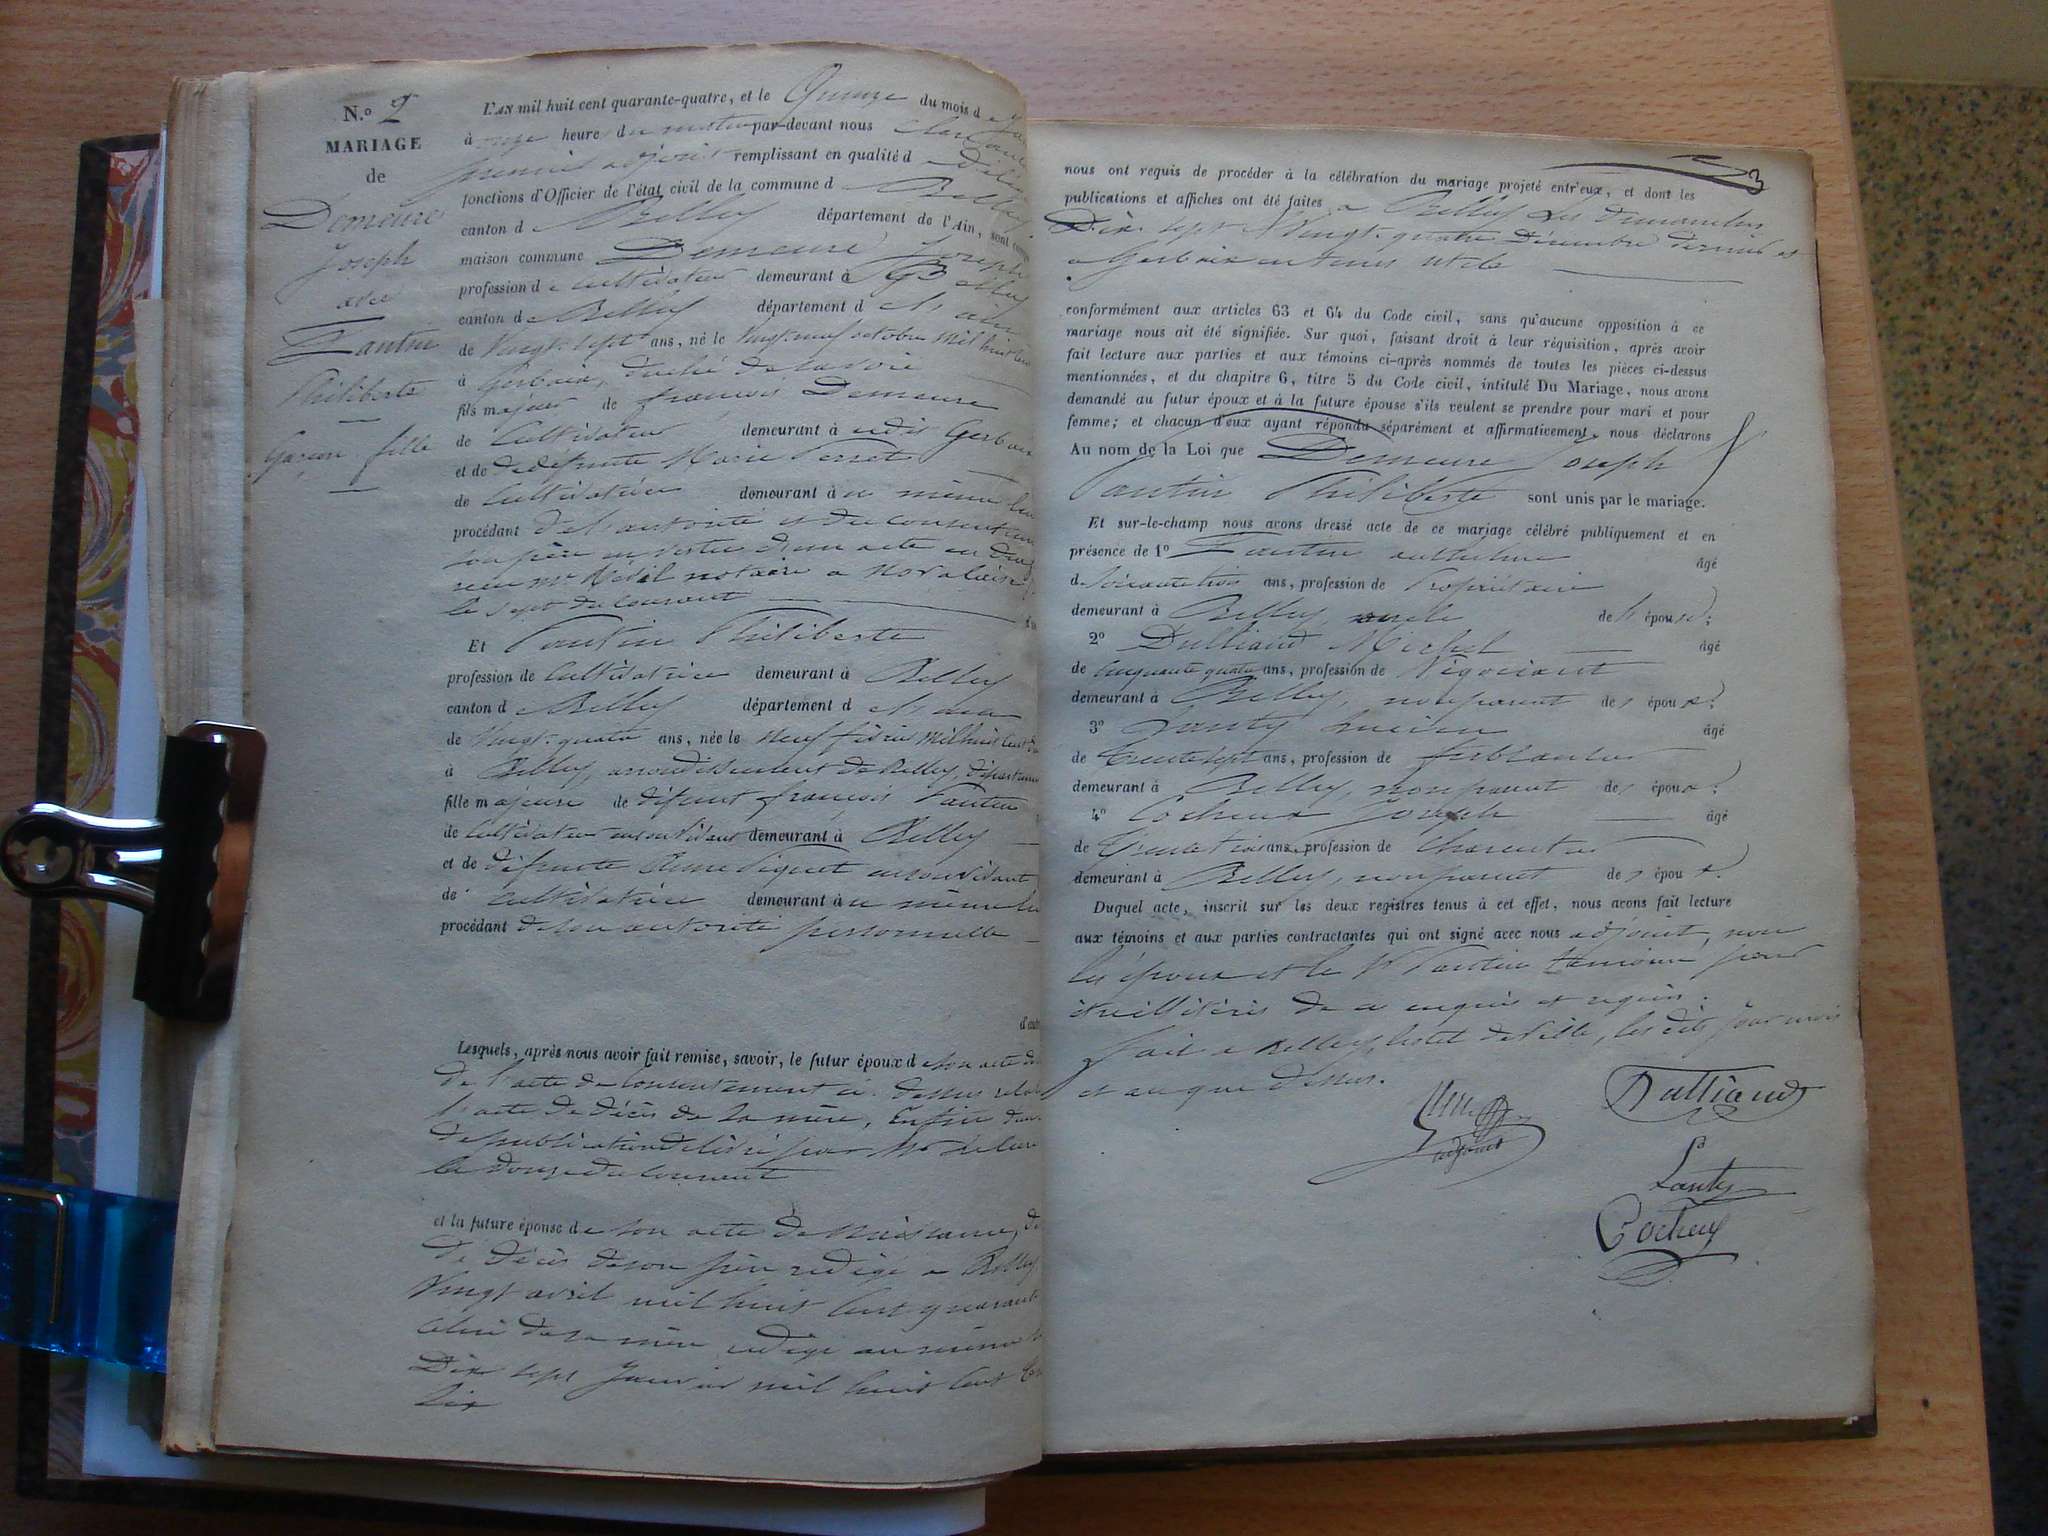 N.º 2
MARIAGE
de
Demeure
Joseph
avec
Tantin
Philiberte
Garçon fille
L'AN mil huit cent quarante-quatre, et le Quinze du mois d
à onze heures du matin par-devant nous
premier adjoint remplissant en qualité d
fonctions d'Officier de l'état civil de la commune d Belley
canton d Belley département de l'Ain, sont
maison commune Demeure Joseph
profession de cultivateur demeurant à Belley
canton de Belley département d l'ain
de Vingt-sept ans, né le Vingt-neuf octobre mil huit cent
à Gerbaix, duché de Savoie
fils majeur de françois Demeure
de Cultivateur demeurant à udit Gerbaix
et de de défunte Marie Perret
de Cultivatrice demeurant à u même lieu
procédant de l'autorité et du consentement
son père en vertu d'un acte en
reçu Mr notaire a Novalaise
le sept du courant
Et Tantin Philiberte
profession de Cultivatrice demeurant à Belley
canton d Belley département d l'ain
de Vingt-quatre ans, née le neuf février mil huit cent
à Belley, arrondissement de Belley, département
fille majeure de défunt françois Tantin
de Cultivateur en son vivant demeurant à Belley
et de défunte Piquet en son vivant
de Cultivatrice demeurant à u même lieu
procédant de son autorité personnelle
Lesquels, après nous avoir fait remise, savoir, le futur époux d e son acte de
de l'acte de Consentement ci-dessus
l'acte de décès de sa mère, Enfin
de publication délivré par Mr
le Douze du courant
et la future épouse d e son acte de Naissance, de
de décès de son père rédigé a Belley
Vingt avril mil huit cent quarante
Celui de sa mère rédigé au même
Dix sept Janvier mil huit cent
dix
3
nous ont requis de procéder à la célébration du mariage projeté entr'eux, et dont les
publications et affiches ont été faites a Belley Les dimanches
Dix-sept & Vingt-quatre Décembre dernier et
a Gerbaix en tems utile
conformément aux articles 63 et 64 du Code civil, sans qu'aucune opposition à ce
mariage nous ait été signifiée. Sur quoi, faisant droit à leur réquisition, après avoir
fait lecture aux parties et aux témoins ci-après nommés de toutes les pièces ci-dessus
mentionnées, et du chapitre 6, titre 5 du Code civil, intitulé Du Mariage, nous avons
demandé au futur époux et à la future épouse s'ils veulent se prendre pour mari et pour
femme; et chacun d'eux ayant répondu séparément et affirmativement, nous déclarons
Au nom de la Loi que Demeure Joseph &
Tantin Philiberte sont unis par le mariage.
Et sur-le-champ nous avons dressé acte de ce mariage célébré publiquement et en
présence de 1º Tantin anthelme âgé
de soixante trois ans, profession de Propriétaire
demeurant à Belley, oncle de l'épouse;
2º Dulliand Michel âgé
de Cinquante quatre ans, profession de Négociant
demeurant à Belley, non parent des époux;
3º Lanty Lucien âgé
de Trente sept ans, profession de ferblantier
demeurant à Belley, non parent des époux;
4º Cocheux Joseph âgé
de Trente trois ans, profession de Charcutier
demeurant à Belley, non parent des époux.
Duquel acte, inscrit sur les deux registres tenus à cet effet, nous avons fait lecture
aux témoins et aux parties contractantes qui ont signé avec nous adjoint, non
les époux et le Sr Tantin témoin pour
être illitérés de ce enquis et requis.
fait a Belley, hotel de Ville, les dits jour mois
et an que dessus.
adjoint
Dulliand
Lanty
Cocheux